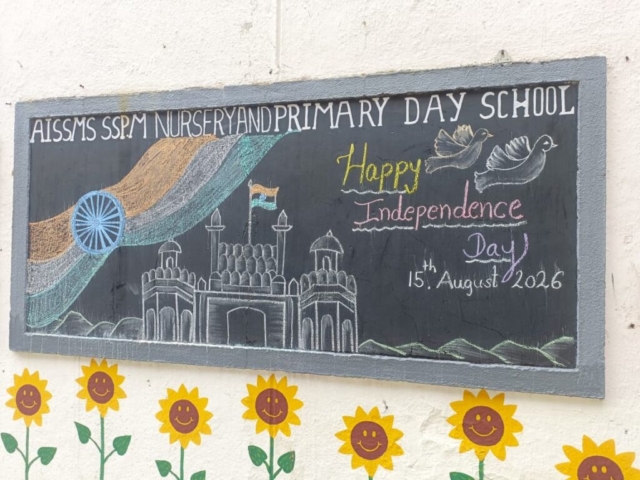 AISSMS SSPM NURSERY AND PRIMARY DAY SCHOOL
Happy
Independence
Day
15th, August 2026